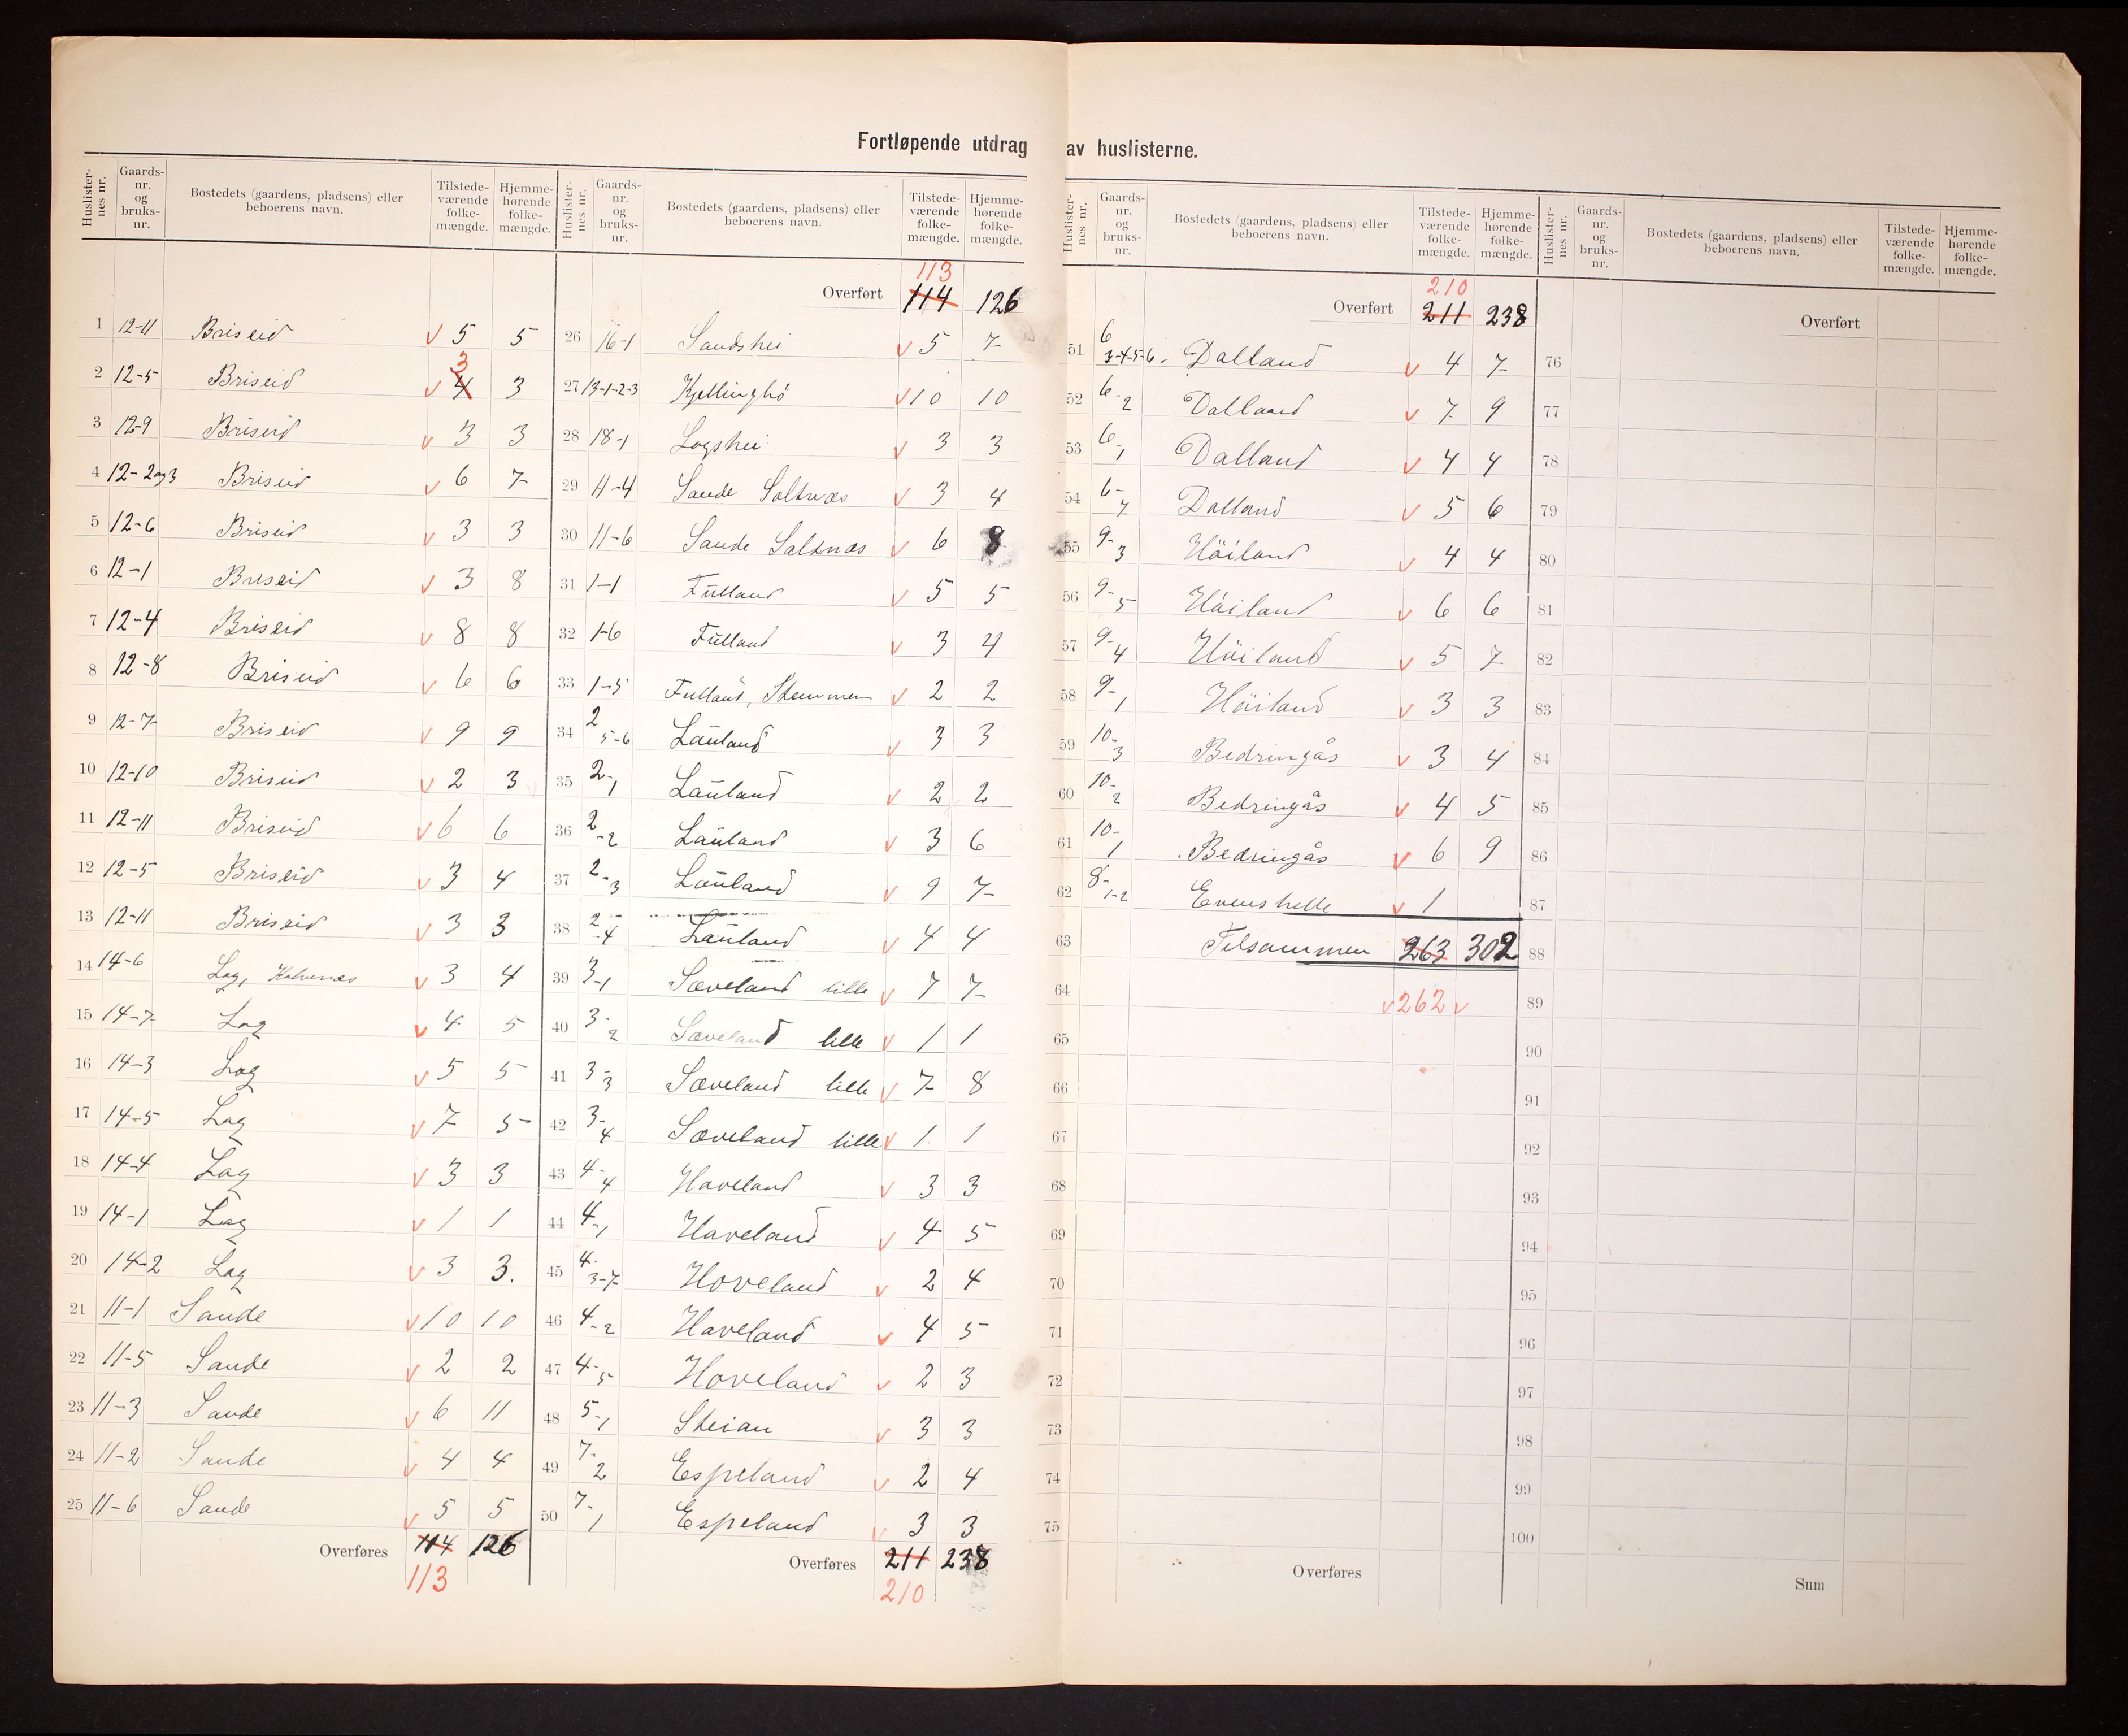 Fortløpende utdrag av huslisterne.
Huslister-nes nr. Gaards-nr. og bruks-nr. Bostedets (gaardens, pladsens) eller beboerens navn. Tilstede-værende folke-mængde. Hjemme-hørende folke-mængde.
1 12-11 Briseid v 5 5
2 12-5 Briseid v 4 3 3
3 12-9 Briseid v 3 3
4 12-2og3 Briseid v 6 7
5 12-6 Briseid v 3 3
6 12-1 Briseid v 3 8
7 12-4 Briseid v 8 8
8 12-8 Briseid v 6 6
9 12-7 Briseid v 9 9
10 12-10 Briseid v 2 3
11 12-11 Briseid v 6 6
12 12-5 Briseid v 3 4
13 12-11 Briseid v 3 3
14 14-6 Lag, Kalvenæs v 3 4
15 14-7 Lag v 4 5
16 14-3 Lag v 5 5
17 14-5 Lag v 7 5
18 14-4 Lag v 3 3
19 14-1 Lag v 1 1
20 14-2 Lag v 3 3.
21 11-1 Sande v 10 10
22 11-5 Sande v 2 2
23 11-3 Sande v 6 11
24 11-2 Sande v 4 4
25 11-6 Sande v 5 5
Overføres 114 126
113
Huslister-nes nr. Gaards-nr. og bruks-nr. Bostedets (gaardens, pladsens) eller beboerens navn. Tilstede-værende folke-mængde. Hjemme-hørende folke-mængde.
113
Overført 114 126
26 16-1 Sandshei v 5 7
27 13-1-2-3 Kjellinghö v 10 10
28 18-1 Lagshei v 3 3
29 11-4 Sande Saltnæs v 3 4
30 11-6 Sande Saltnæs v 6 8
31 1-1 Fülland v 5 5
32 1-6 Fülland v 3 4
33 1-5 Fulland, Stemmen v 2 2
34 2 5-6 Lauland v 3 3
35 2-1 Lauland v 2 2
36 2-2 Lauland v 3 6
37 2-3 Lauland v 9 7
38 2-4 Lauland v 4 4
39 3-1 Sæveland lille v 7 7
40 3-2 Sæveland lille v 1 1
41 3-3 Sæveland lille v 7 8
42 3-4 Sæveland lille v 1 1
43 4-4 Haveland v 3 3
44 4-1 Haveland v 4 5
45 4-3-7 Hoveland v 2 4
46 4-2 Haveland v 4 5
47 4-5 Hoveland v 2 3
48 5-1 Steian v 3 3
49 7-2 Espeland v 2 4
50 7-1 Espeland v 3 3
Overføres 211 238
210
Huslister-nes nr. Gaards-nr. og bruks-nr. Bostedets (gaardens, pladsens) eller beboerens navn. Tilstede-værende folke-mængde. Hjemme-hørende folke-mængde.
210
Overført 211 238
51 6 3-4-5-6. Dalland v 4 7
52 6-2 Dalland v 7 9
53 6-1 Dalland v 4 4
54 6-7 Dalland v 5 6
55 9-3 Höiland v 4 4
56 9-5 Höiland v 6 6
57 9-4 Höiland v 5 7
58 9-1 Höiland v 3 3
59 10-3 Bedringås v 3 4
60 10-2 Bedringås v 4 5
61 10-1 Bedringås v 6 9
62 8-1-2 Evenshelle v 1
63 Tilsammen 263 302
64 v 262 v
65
66
67
68
69
70
71
72
73
74
75
Overføres
Huslister-nes nr. Gaards-nr. og bruks-nr. Bostedets (gaardens, pladsens) eller beboerens navn. Tilstede-værende folke-mængde. Hjemme-hørende folke-mængde.
Overført
76
77
78
79
80
81
82
83
84
85
86
87
88
89
90
91
92
93
94
95
96
97
98
99
100
Sum